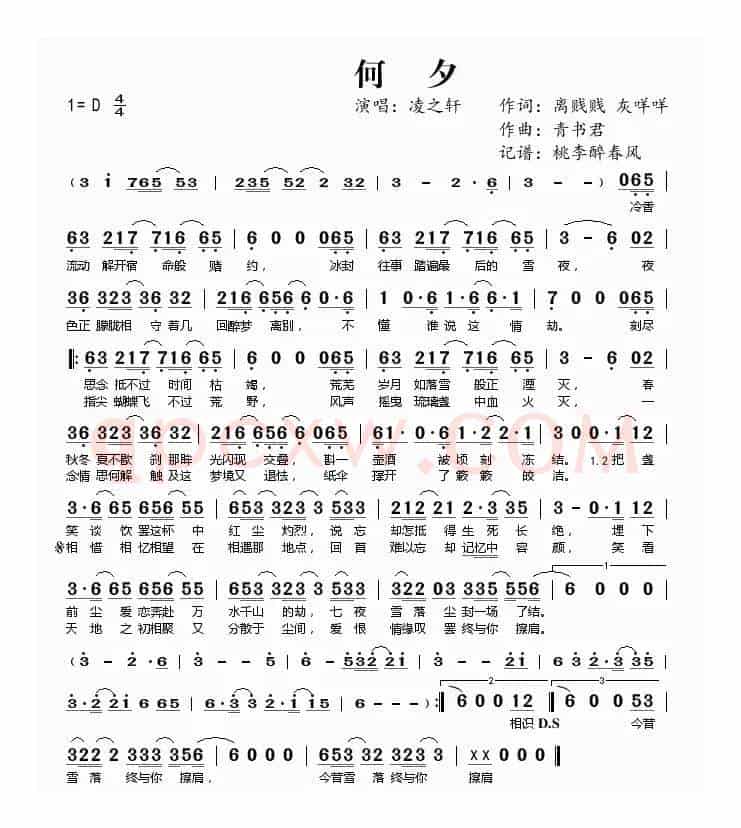 何 夕
1= D 4/4 演唱：凌之轩 作词：离贱贱 灰咩咩
作曲：青书君
记谱：桃李醉春风
( 3 i 765 53 | 235 52 2 32 | 3 - 2 · 6 | 3 - - ) 065 |
冷香
63 217 716 65 | 6 0 0 065 | 63 217 716 65 | 3 - 6 02 |
流动 解开宿 命般 赌 约， 冰封 往事 踏遍最 后的 雪 夜， 夜
36 323 36 32 | 216 656 6 0·6 | 1 0·6 1·6 6·1 | 7 0 0 065 |
色正 朦胧相 守 着几 回醉梦 离别， 不 懂 谁说 这 情 劫。 刻尽
63 217 716 65 | 6 0 0 065 | 63 217 716 65 | 3 - 6 02 |
思念 抵不过 时间 枯 竭， 荒芜 岁月 如落雪 般正 湮 灭， 春
指尖 蝴蝶飞 不过 荒 野， 风声 摇曳 琉璃盏 中血 火 灭， 一
36 323 36 32 | 216 656 6 065 | 61 0·6 1·2 2·1 | 3 0 0·1 12 |
秋冬 夏不歇 刹 那眸 光闪现 交叠， 斟一 壶酒 被顷 刻 冻 结。 1.2 把 盏
念情 思何解 触 及这 梦境又 退怯， 纸伞 撑开 了 簌 簌 皎 洁。
3·6 65 65 52 | 653 3·3 533 | 212 21 2·335 | 3 - 0·1 12 |
笑 谈 饮 罢这杯 中 红 尘 灼烈， 说 忘 却怎抵 得 生 死 长 绝， 埋 下
相 惜 相 忆相望 在 相遇那 地点， 回 首 难以忘 却 记忆中 容 颜， 笑 看
前 尘 爱 恋奔赴 万 水千山 的劫， 七 夜 雪 落 尘 封一场 了 结。
天 地 之 初相聚 又 分散于 尘间， 爱 恨 情缘叹 罢 终与你 擦肩。
相识 D.S 今昔
322 2 333 356 | 6 0 0 0 | 653 32 323 2 | XX 0 0 0 ‖
雪 落 终与你 擦肩， 今昔雪 落 终与你 擦肩
qpcxw.COM